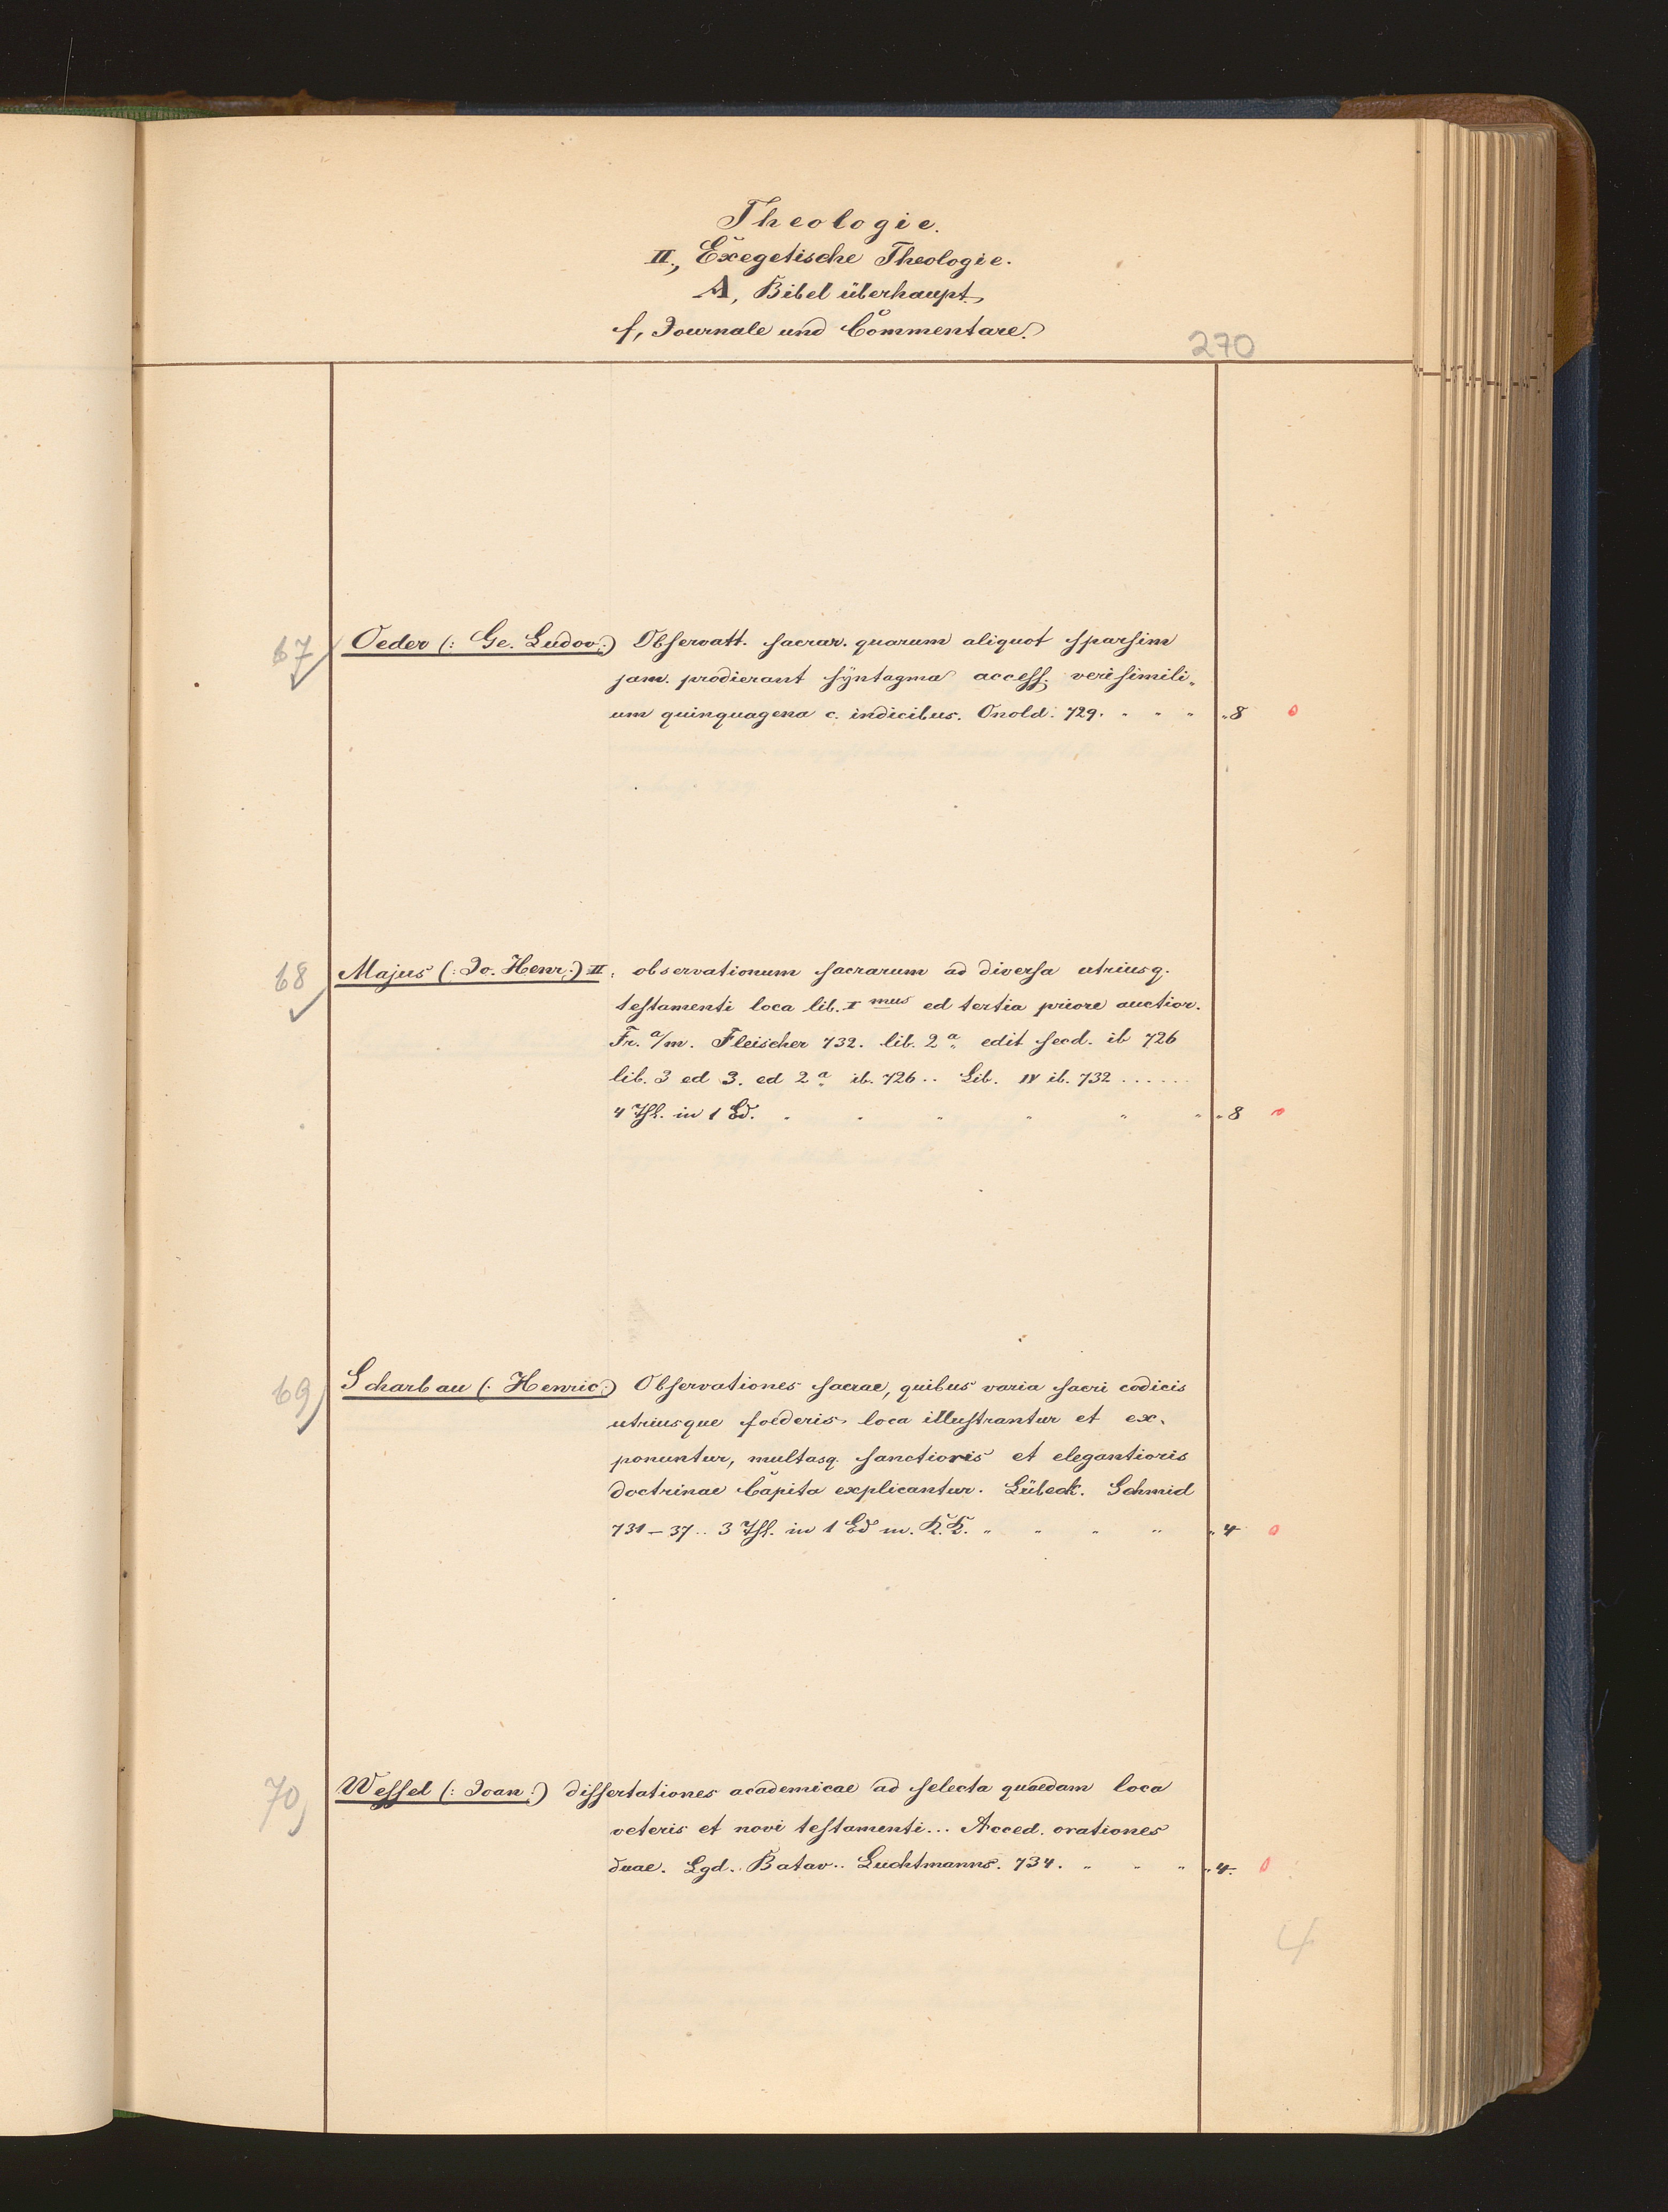 Theologie.
II., Exegetische Theologie.
A, Bibel überhaupt,
f, Journale und Commentare.
270
67
Oeder (: Ge. Ludov:) Observatt. sacrar. quarum aliquot sparsim
jam. prodierant syntagma access. verisimili„
um quinquagena c. indicibus. Onold. 729. " " " "8 0
68
Majus (: Jo. Henr:) II, observationum sacrarum ad diversa utriusq.
testamenti loca lib. I mus ed tertia priore auctior.
Fr. a/m. Fleischer 732. lib. 2a edit secd. ib 726
lib. 3 ed 3. ed 2a ib. 726.. Lib. IV ib. 732 ......
4 Thl. in 1 Bd. " " " " " " "8 0
69
Scharbau (: Henric:) Observationes sacrae, quibus varia sacri codicis
utriusque foederis loca illustrantur et ex„
ponuntur, multasq. sanctioris et elegantioris
doctrinae Capita explicantur. Lübeck. Schmid
731–37.. 3 Thl. in 1 Bd m. K.K. " " " " "4 0
70
Wessel (: Joan:) dissertationes academicae ad selecta quaedam loca
veteris et novi testamenti... Acced. orationes
duae. Lgd. Batav.. Luchtmanns. 734. " " " "4. 0
4